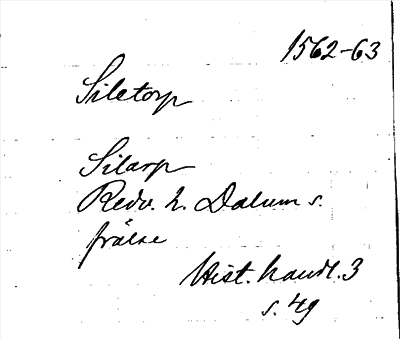 1562-63
Siletorp
Silarp
Redv. h. Dalum s.
frälse
Hist. handl. 3
s. 49